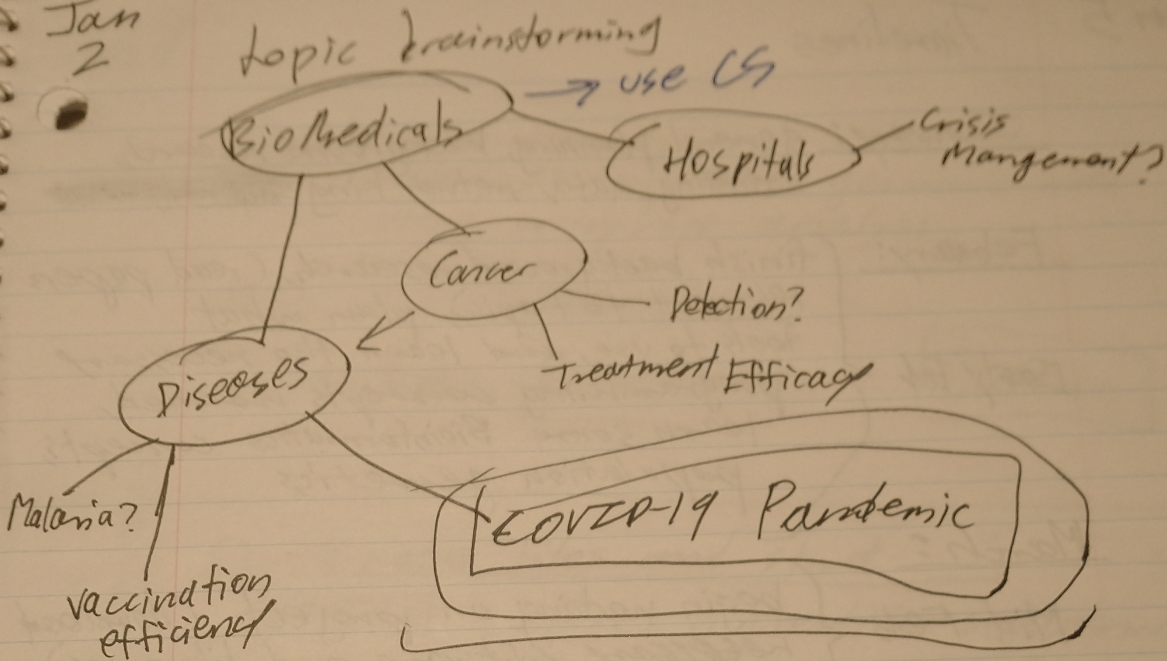 Jan
2
topic brainstorming
→ use CS
BioMedicals
Hospitals
Crisis
Mangement?
Cancer
Detection?
Treatment Efficacy
Diseases
Malaria?
vaccination
efficiency
COVID-19 Pandemic